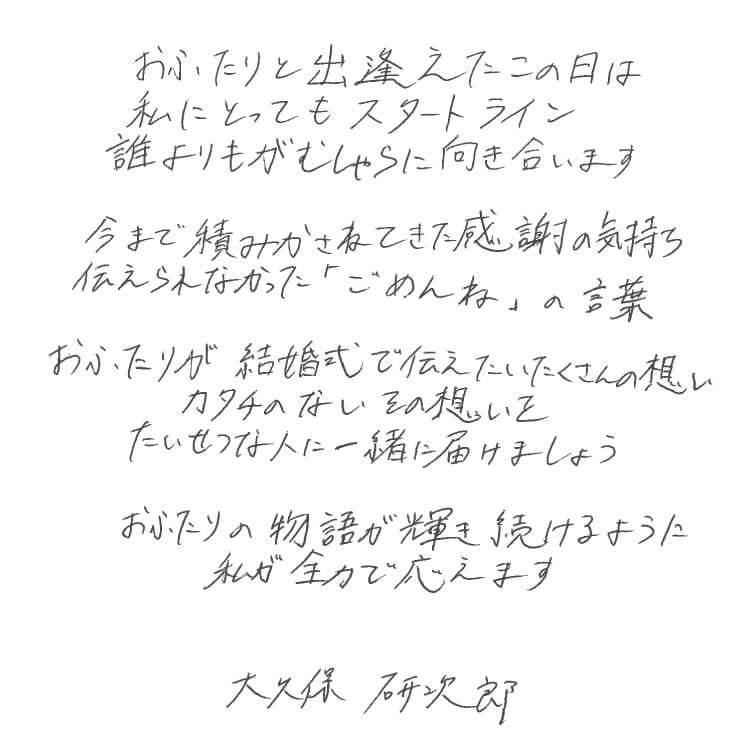 おふたりと出逢えたこの日は
私にとってもスタートライン
誰よりもがむしゃらに向き合います
今まで積みかさねてきた感謝の気持ち
伝えられなかった「ごめんね」の言葉
おふたりが結婚式で伝えたいたくさんの想い
カタチのないその想いを
たいせつな人に一緒に届けましょう
おふたりの物語が輝き続けるように
私が全力で応えます
大久保 研次郎